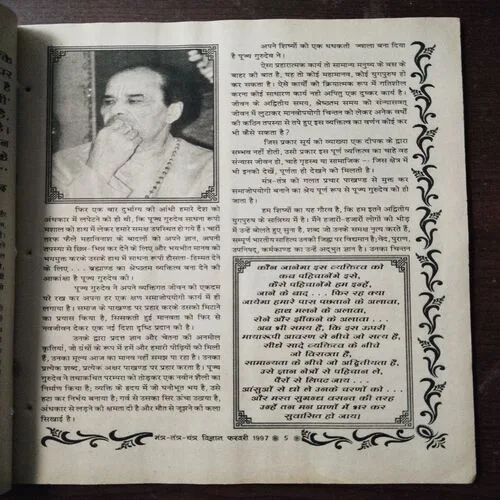 फिर एक बार दुर्भाग्य की आंधी हमारे देश को
अंधकार में लपेटने को ही थी, कि पूज्य गुरुदेव साधना रूपी
मशाल को हाथ में लेकर हमारे समक्ष उपस्थित हो गये हैं। चारों
तरफ फैले महाविनाश के बादलों को अपने ज्ञान, अपनी
तपस्या से छिन्न-भिन्न कर देने के लिए और भयभीत मानव को
भयमुक्त करके उसके हाथ में साधना रूपी हौसला-हिम्मत देने
के लिए . . . ब्रह्माण्ड का श्रेष्ठतम व्यक्तित्व बना देने की
आकांक्षा है पूज्य गुरुदेव की।
पूज्य गुरुदेव ने अपने व्यक्तिगत जीवन को एकदम
परे रख कर अपना हर एक क्षण समाजोपयोगी कार्य में ही
लगाया है। समाज के पाखण्ड पर प्रहार करके उसको मिटाने
का प्रयास किया है, सिसकती हुई मानवता को फिर से
नवजीवन देकर एक नई दिशा दृष्टि प्रदान की है।
उनके द्वारा प्रदत्त ज्ञान और चेतना की अनमोल
कृतियां, जो ग्रंथों के रूप में हमें और हमारी पीढ़ियों को मिली
हैं, उनका मूल्य आज का मानव नहीं समझ पा रहा है। उनका
प्रत्येक शब्द, प्रत्येक अक्षर पाखण्ड पर प्रहार करता है। पूज्य
गुरुदेव ने तथाकथित परम्परा को तोड़कर एक नवीन शैली का
निर्माण किया है; व्यक्ति के हृदय में जो घनीभूत भय है, उसे
हटा कर निर्भय बनाया है; गर्व से उसका सिर ऊंचा उठाया है,
अंधकार से लड़ने की क्षमता दी है और मौत से जूझने की कला
सिखाई है।
अपने शिष्यों को एक धधकती ज्वाला बना दिया
है पूज्य गुरुदेव ने।
ऐसा प्रहारात्मक कार्य तो सामान्य मनुष्य के बस के
बाहर की बात है, यह तो कोई महामानव, कोई युगपुरुष ही
कर सकता है। ऐसे कार्यों को क्रियात्मक रूप में गतिशील
करना कोई साधारण कार्य नहीं अपितु एक दुष्कर कार्य है।
जीवन के अद्वितीय समय, श्रेष्ठतम समय को संन्यासवत्
जीवन में लुटाकर मानवोपयोगी चिन्तन को लेकर अनेक वर्षों
की कठिन तपस्या से तपे हुए इस व्यक्तित्व का वर्णन कोई कर
भी कैसे सकता है?
जिस प्रकार सूर्य की व्याख्या एक दीपक के द्वारा
सम्भव नहीं होती, उसी प्रकार इस पूर्ण व्यक्तित्व का चाहे वह
संन्यास जीवन हो, चाहे गृहस्थ या सामाजिक -- जिस क्षेत्र में
भी इनको देखें, पूर्णता ही देखने को मिलती है।
मंत्र-तंत्र को गलत प्रचार पाखण्ड से मुक्त कर
समाजोपयोगी बनाने का श्रेय पूर्ण रूप से पूज्य गुरुदेव को ही
जाता है।
हम शिष्यों का यह गौरव है, कि हम इतने अद्वितीय
युगपुरुष के सान्निध्य में हैं। मैंने हजारों-हजारों लोगों की भीड़
में उन्हें बोलते हुए सुना है, शब्द जो उनके समक्ष नृत्य करते हैं,
सम्पूर्ण भारतीय साहित्य उनकी जिह्वा पर विद्यमान है; वेद, पुराण,
उपनिषद, कर्मकाण्ड का उन्हें अद्भुत ज्ञान है। उनका चिन्तन
कौन जानेगा इस व्यक्तित्व को
कब पहिचानेंगे इसे,
कैसे पहिचानेंगे हम इन्हें,
जाने के बाद . . . फिर रह क्या
जायेगा हमारे पास पछताने के अलावा,
हाथ मलने के अलावा,
रोने और झींकने के अलावा . . .
अब भी समय है, कि इस ऊपरी
मायारूपी आवरण से नीचे जो सत्य है,
सीधे सादे व्यक्तित्व के नीचे
जो विराटता है,
सामान्यता के नीचे जो अद्वितीयता है,
उसे ज्ञान नेत्रों से पहिचान लें,
पैरों से लिपट जाय . . .
आंसुओं से धो लें उनके चरणों को . . .
और मस्त सुगन्ध वसन्त की तरह
उन्हें तन मन प्राणों में भर कर
सुवासित हो जाय।
मंत्र-तंत्र-यंत्र विज्ञान फरवरी 1997 * 5 *